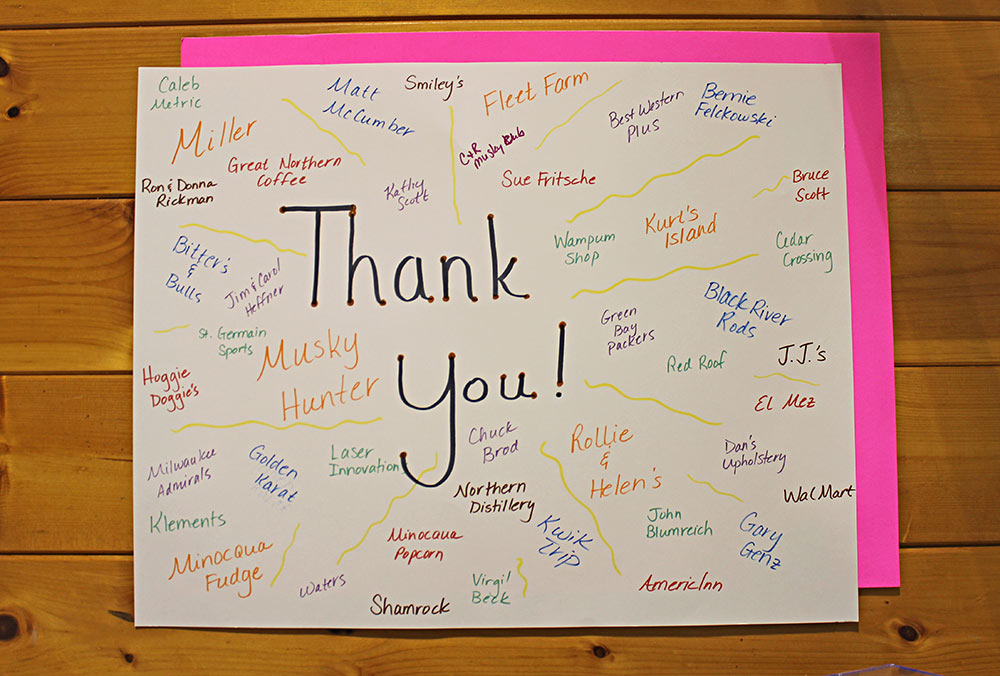 Caleb
Metric
Matt
McCumber
Smiley's
Fleet Farm
Best Western
Plus
Bernie
Felckowski
Miller
C&R
Musky Club
Great Northern
Coffee
Ron & Donna
Rickman
Kathy
Scott
Sue Fritsche
Bruce
Scott
Thank
You!
Wampum
Shop
Kurt's
Island
Cedar
Crossing
Bitter's
&
Bulls
Jim & Carol
Heffner
Black River
Rods
Green
Bay
Packers
St. Germain
Sports
Musky
Hunter
Red Roof
J.J.'s
Hoggie
Doggie's
El Mez
Milwaukee
Admirals
Golden
Karat
Laser
Innovation
Chuck
Brod
Rollie
&
Helen's
Dan's
Upholstery
Northern
Distillery
WalMart
Klements
John
Blumreich
Gary
Genz
Minocqua
Fudge
Minocqua
Popcorn
Kwik
Trip
Waters
Virgil
Beck
AmericInn
Shamrock